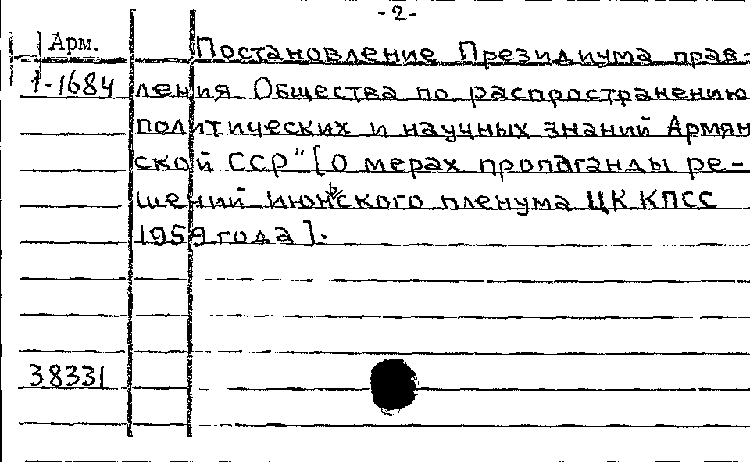 -2-
Арм.
1-1684
Постановление Президиума прав-
ления Общества по распространению
политических и научных знаний Армян
ской ССР" [О мерах пропаганды ре-
шений июньского пленума ЦК КПСС
1959 года].
38331